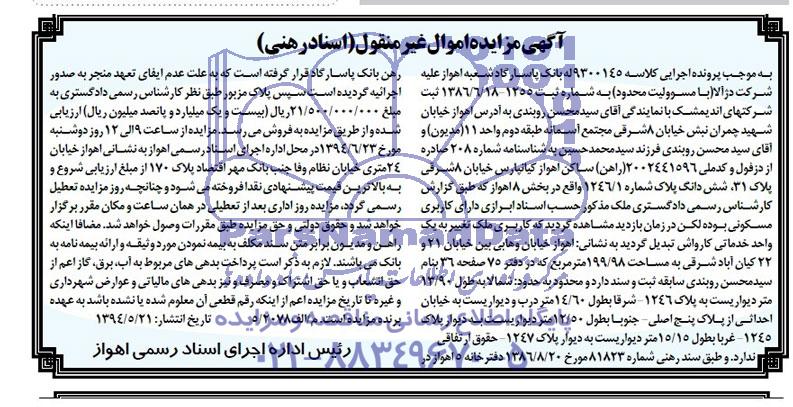 آگهی مزایده اموال غیر منقول (اسناد رهنی)
به موجب پرونده اجرایی کلاسه ۹۳۰۰۱۴۵ له بانک پاسارگاد شعبه اهواز علیه
شرکت دژ الا (با مسوولیت محدود) به شماره ثبت ۱۲۵۵-۱۳۸۶/۶/۱۸ ثبت
شرکتهای اندیمشک با نمایندگی آقای سید محسن روبندی به آدرس اهواز خیابان
شهید چمران نبش خیابان ۸ شرقی مجتمع آسمانه طبقه دوم واحد ۱۱ (مدیون) و
آقای سید محسن روبندی فرزند سید محمدحسین به شناسنامه شماره ۲۰۸ صادره
از دزفول و کدملی ۲۰۰۲۴۴۱۵۹۶ (راهن) ساکن اهواز کیانپارس خیابان ۸ شرقی
پلاک ۳۱، شش دانگ پلاک شماره ۱۲۴۶/۱ واقع در بخش ۸ اهواز که طبق گزارش
کارشناس رسمی دادگستری ملک مذکور حسب اسناد ابرازی دارای کاربری
مسکونی بوده لکن در زمان بازدید مشاهده گردید که کاربری ملک تغییر به یک
واحد خدماتی کارواش تبدیل گردید به نشانی: اهواز خیابان وهابی بین خیابان ۲۱ و
۲۲ کیان آباد شرقی به مساحت ۱۹۹/۹۸ مترمربع که در دفتر ۷۵ صفحه ۳۶ بنام
سید محسن روبندی سابقه ثبت و سند دارد و محدود به حدود: شمالا به طول ۱۳/۹۰
متر دیواریست به پلاک ۱۲۴۶ - شرقا بطول ۱۴/۶۰ متر درب و دیواریست به خیابان
احداثی از پلاک پنج اصلی - جنوبا بطول ۱۲/۵۰ متر دیواریست به دیوار پلاک
۱۲۴۵ - غربا بطول ۱۵/۱۵ متر دیواریست به دیوار پلاک ۱۲۴۷ - حقوق ارتفاقی
ندارد. و طبق سند رهنی شماره ۸۱۸۲۳ مورخ ۱۳۸۶/۸/۲۰ دفترخانه ۵ اهواز در
رهن بانک پاسارگاد قرار گرفته است که به علت عدم ایفای تعهد منجر به صدور
اجرائیه گردیده است سپس پلاک مزبور طبق نظر کارشناس رسمی دادگستری به
مبلغ ۲۱/۵۰۰/۰۰۰/۰۰۰ ریال (بیست و یک میلیارد و پانصد میلیون ریال) ارزیابی
شده و از طریق مزایده به فروش می رسد. مزایده از ساعت ۹ الی ۱۲ روز دوشنبه
مورخ ۱۳۹۴/۶/۲۳ در محل اداره اجرای اسناد رسمی اهواز به نشانی اهواز خیابان
۲۴ متری خیابان نظام وفا جنب بانک مهر اقتصاد پلاک ۱۷۰ از مبلغ ارزیابی شروع و
به بالاترین قیمت پیشنهادی نقدا فروخته می شود و چنانچه روز مزایده تعطیل
رسمی گردد، مزایده روز اداری بعد از تعطیلی در همان ساعت و مکان مقرر برگزار
خواهد شد و حقوق دولتی و حق مزایده طبق مقررات وصول خواهد شد. مضافا اینکه
راهن و مدیون برابر متن سند مکلف به بیمه نمودن مورد وثیقه و ارائه بیمه نامه به
بانک می باشند. لازم به ذکر است پرداخت بدهی های مربوط به آب، برق، گاز اعم از
حق انشعاب و یا حق اشتراک و مصرف و نیز بدهی های مالیاتی و عوارض شهرداری
و غیره تا تاریخ مزایده اعم از اینکه رقم قطعی آن معلوم شده یا نشده باشد به عهده
برنده مزایده است. م الف ۵/۲۰۷۸ تاریخ انتشار: ۱۳۹۴/۵/۲۱
رئیس اداره اجرای اسناد رسمی اهواز
پایگاه اطلاع رسانی مناقصه و مزایده
۰۲۱-۸۸۳۴۹۶۷۰-۵